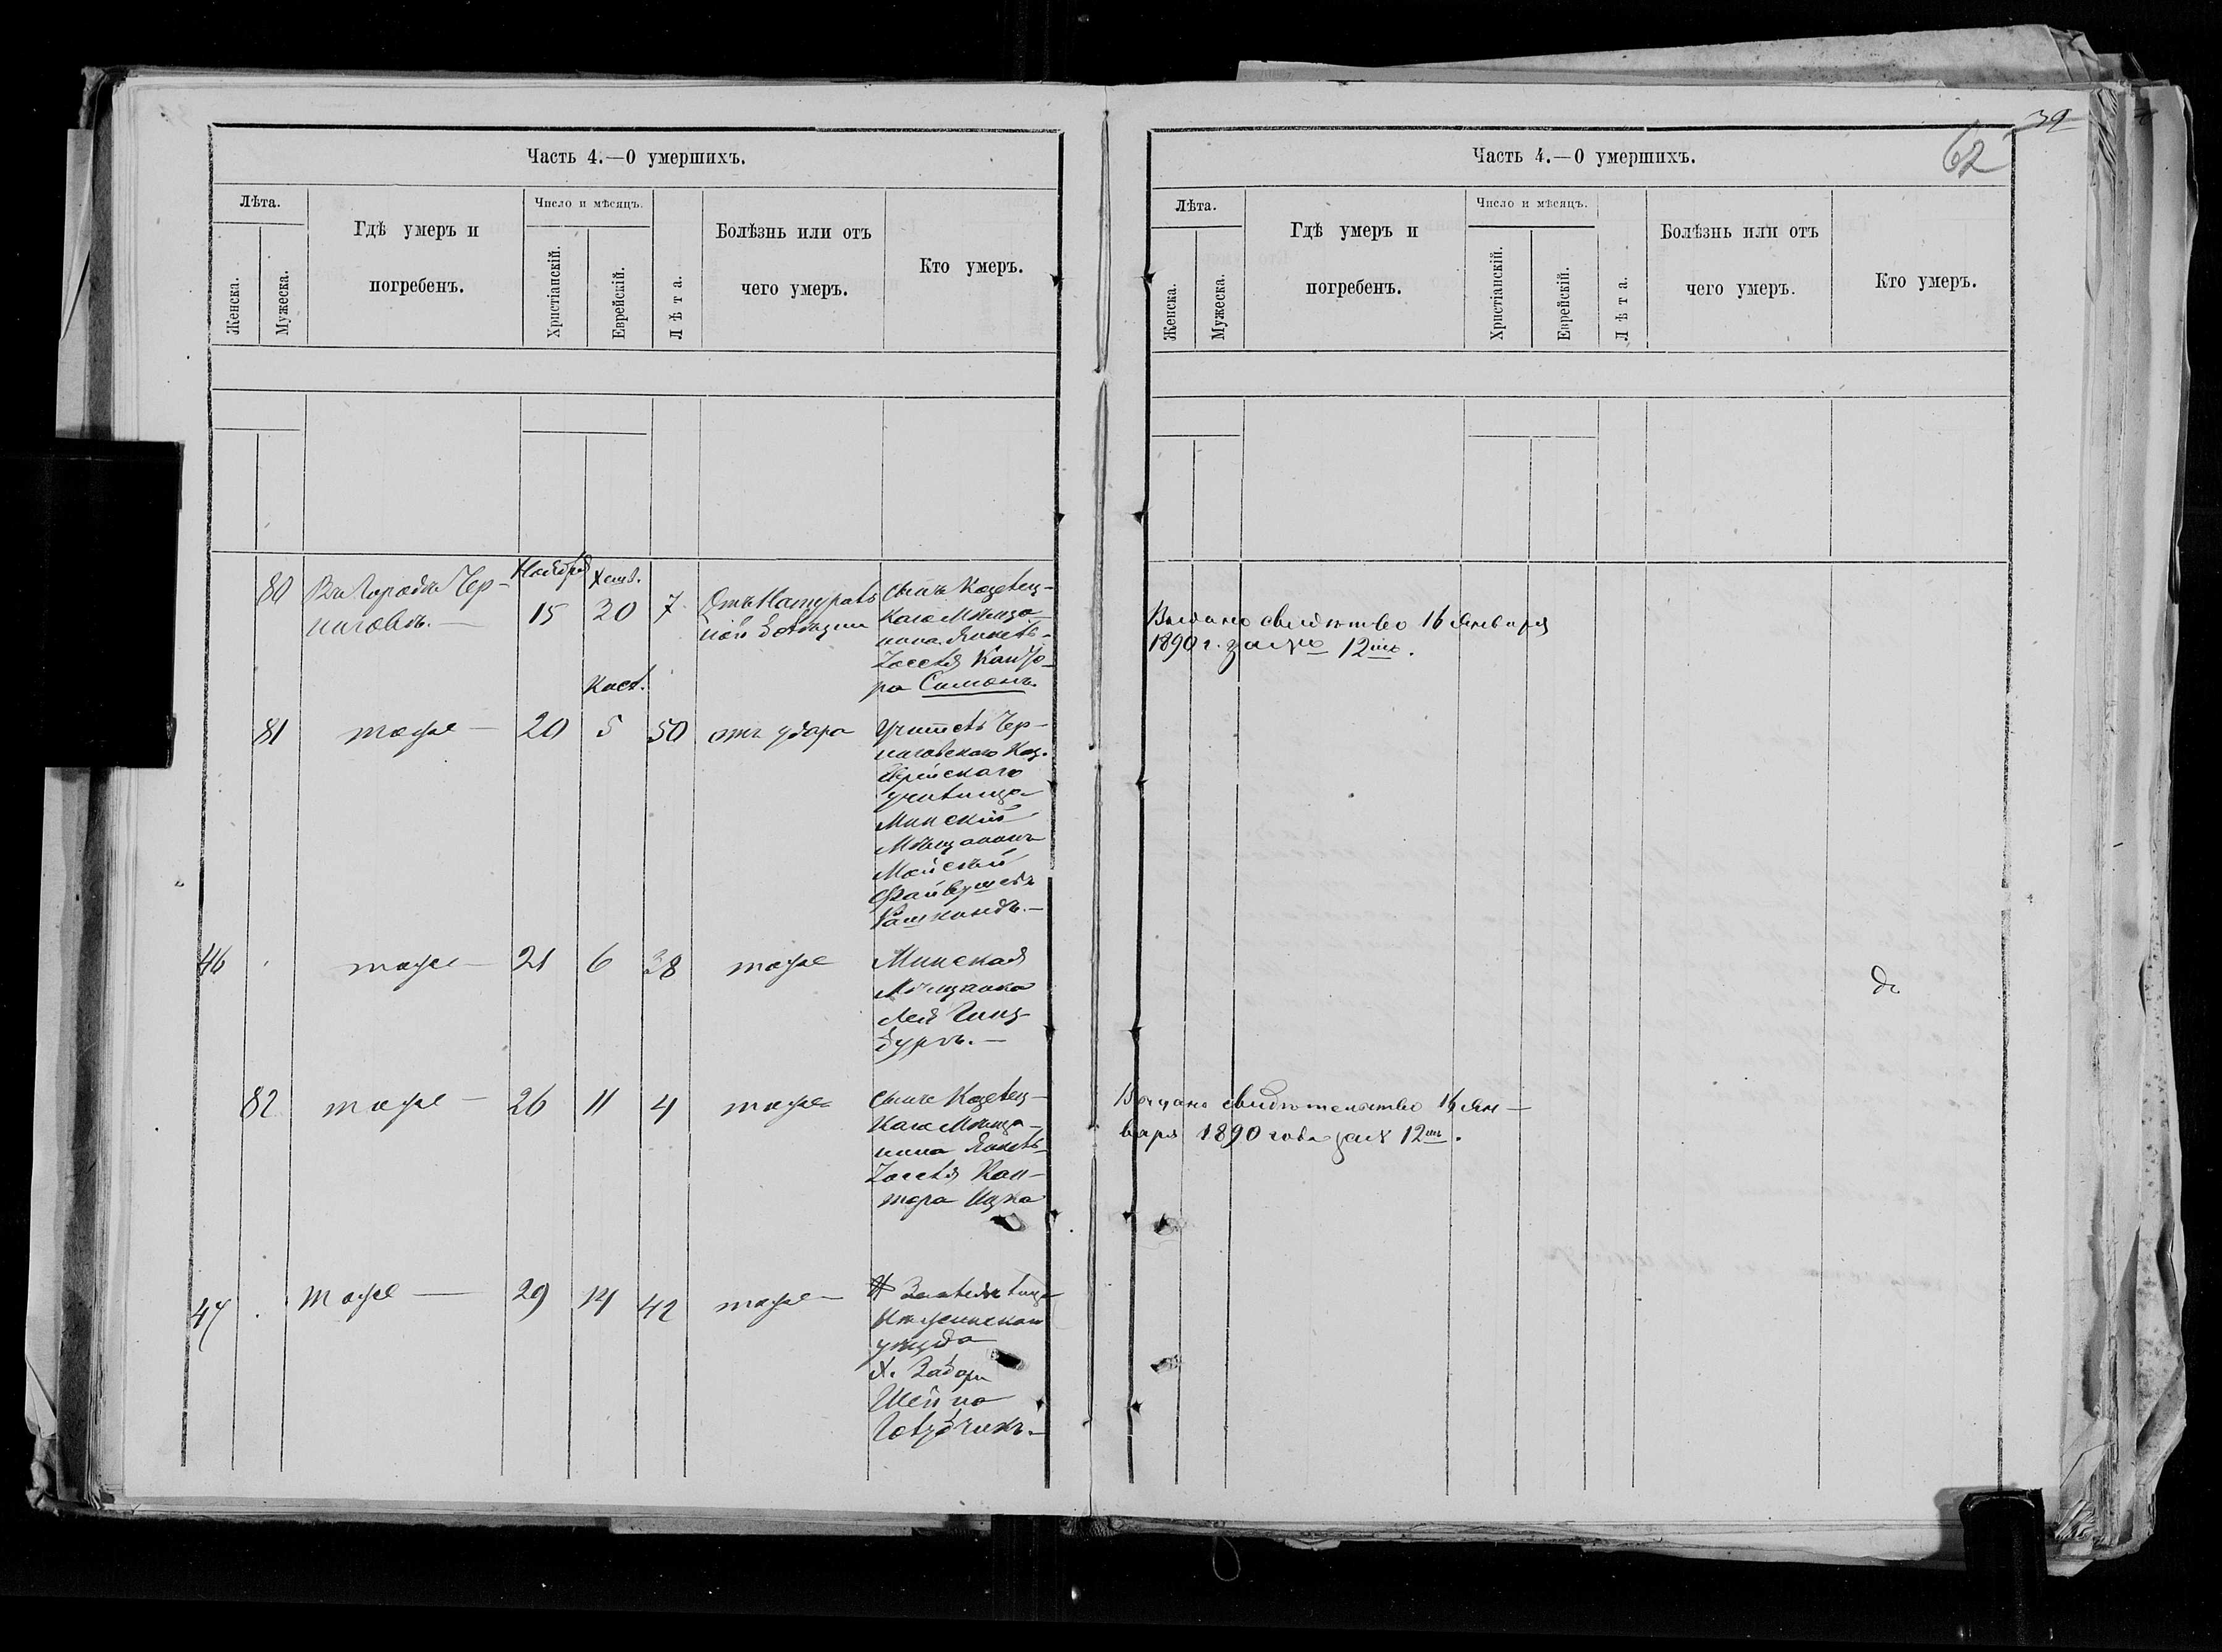 Часть 4.—О умершихъ.
Лѣта.
Женска.
Мужеска.
Гдѣ умеръ и
погребенъ.
Число и мѣсяцъ.
Христіанскій.
Еврейскій.
Лѣта.
Болѣзнь или отъ
чего умеръ.
Кто умеръ.
80
Въ Городѣ Чер-
ниговѣ. —
Ноября
15
Хешв.
20
7
Отъ Натураль
ной болѣзни
Сынъ Козелец-
каго Мѣща-
нина Янкель-
Іоселя Канто-
ра Симонъ.
Кисл.
81
тоже —
20
5
50
отъ удара
Учитель Чер-
ниговского Каз.
Еврейскаго
училища
Минскій
Мѣщанинъ
46
тоже —
21
6
38
тоже
Минская
Мѣщанка
Лея Гинц-
бургъ. —
82
тоже —
26
11
4
тоже
Сынъ Козелец-
каго Мѣща-
нина Янкель-
Іоселя Кан-
тора Ицко
47
тоже —
29
14
42
тоже —
уѣзда
Шейна
Голубчикъ. —
Часть 4.—О умершихъ.
62
39
Лѣта.
Женска.
Мужеска.
Гдѣ умеръ и
погребенъ.
Число и мѣсяцъ.
Христіанскій.
Еврейскій.
Лѣта.
Болѣзнь или отъ
чего умеръ.
Кто умеръ.
Выдано свидѣтство 16 Января
1890 г. за № 12мъ.
Выдано свидѣтельство 16 Ян-
варя 1890 года за № 12мъ.